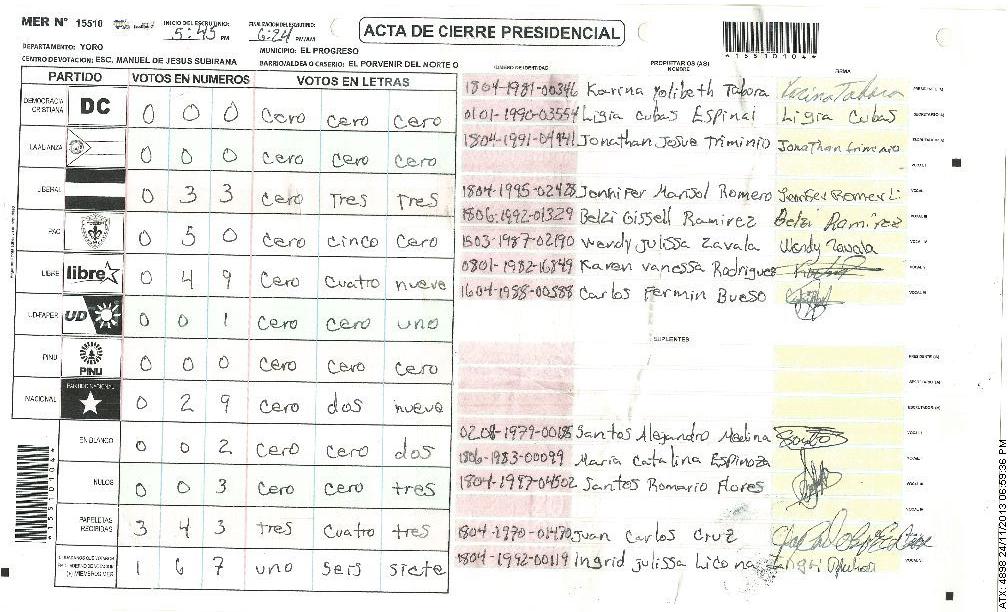 MER N° 15510 INICIO DEL ESCRUTINIO: 5:45 PM FINALIZACION DEL ESCRUTINIO: 6:24 PM/AM
ACTA DE CIERRE PRESIDENCIAL
*155101 04*
DEPARTAMENTO: YORO MUNICIPIO: EL PROGRESO
CENTRO DE VOTACION: ESC. MANUEL DE JESUS SUBIRANA BARRIO/ALDEA O CASERIO: EL PORVENIR DEL NORTE O
PARTIDO VOTOS EN NUMEROS VOTOS EN LETRAS
DEMOCRACIA CRISTIANA DC 0 0 0 Cero Cero Cero
LA ALIANZA 0 0 0 Cero Cero Cero
LIBERAL 0 3 3 Cero Tres Tres
PAC 0 5 0 Cero cinco Cero
LIBRE libre 0 4 9 Cero Cuatro nueve
UD-FAPER UD 0 0 1 Cero Cero uno
PINU PINU 0 0 0 Cero Cero Cero
NACIONAL PARTIDO NACIONAL 0 2 9 Cero dos nueve
EN BLANCO 0 0 2 Cero Cero dos
NULOS 0 0 3 Cero Cero tres
PAPELETAS RECIBIDAS 3 4 3 tres Cuatro tres
1 6 7 uno seis siete
NUMERO DE IDENTIDAD PROPIETARIOS (AS) NOMBRE FIRMA
1804-1981-00346 Karina Yolibeth Tabora Karina Tabora PRESIDENTE (A)
0101-1990-03554 Ligia Cubas Espinal Ligia Cubas SECRETARIO (A)
1804-1991-04941 Jonathan Josue Triminio Jonathan Triminio ESCRUTADOR (A)
VOCAL I
1804-1995-02428 Jennifer Marisol Romero VOCAL
1806-1992-01329 Belzi Gissell Ramirez Belzi Ramirez VOCAL III
1503-1987-02190 Wendy Julissa Zavala Wendy Zavala VOCAL IV
0801-1982-16849 Karen Vanessa Rodriguez VOCAL V
1604-1988-00588 Carlos Fermin Bueso VOCAL VI
SUPLENTES
PRESIDENTE (A)
SECRETARIO (A)
ESCRUTADOR (A)
0208-1979-00185 Santos Alejandro Medina VOCAL I
1806-1983-00099 Maria Catalina Espinoza VOCAL
1804-1987-04502 Santos Romario Flores VOCAL III
VOCAL IV
1804-1970-01470 Juan Carlos Cruz VOCAL V
1804-1992-00119 Ingrid Julissa Licona VOCAL
ATX: 4898 24/11/2013 06:59:36 PM